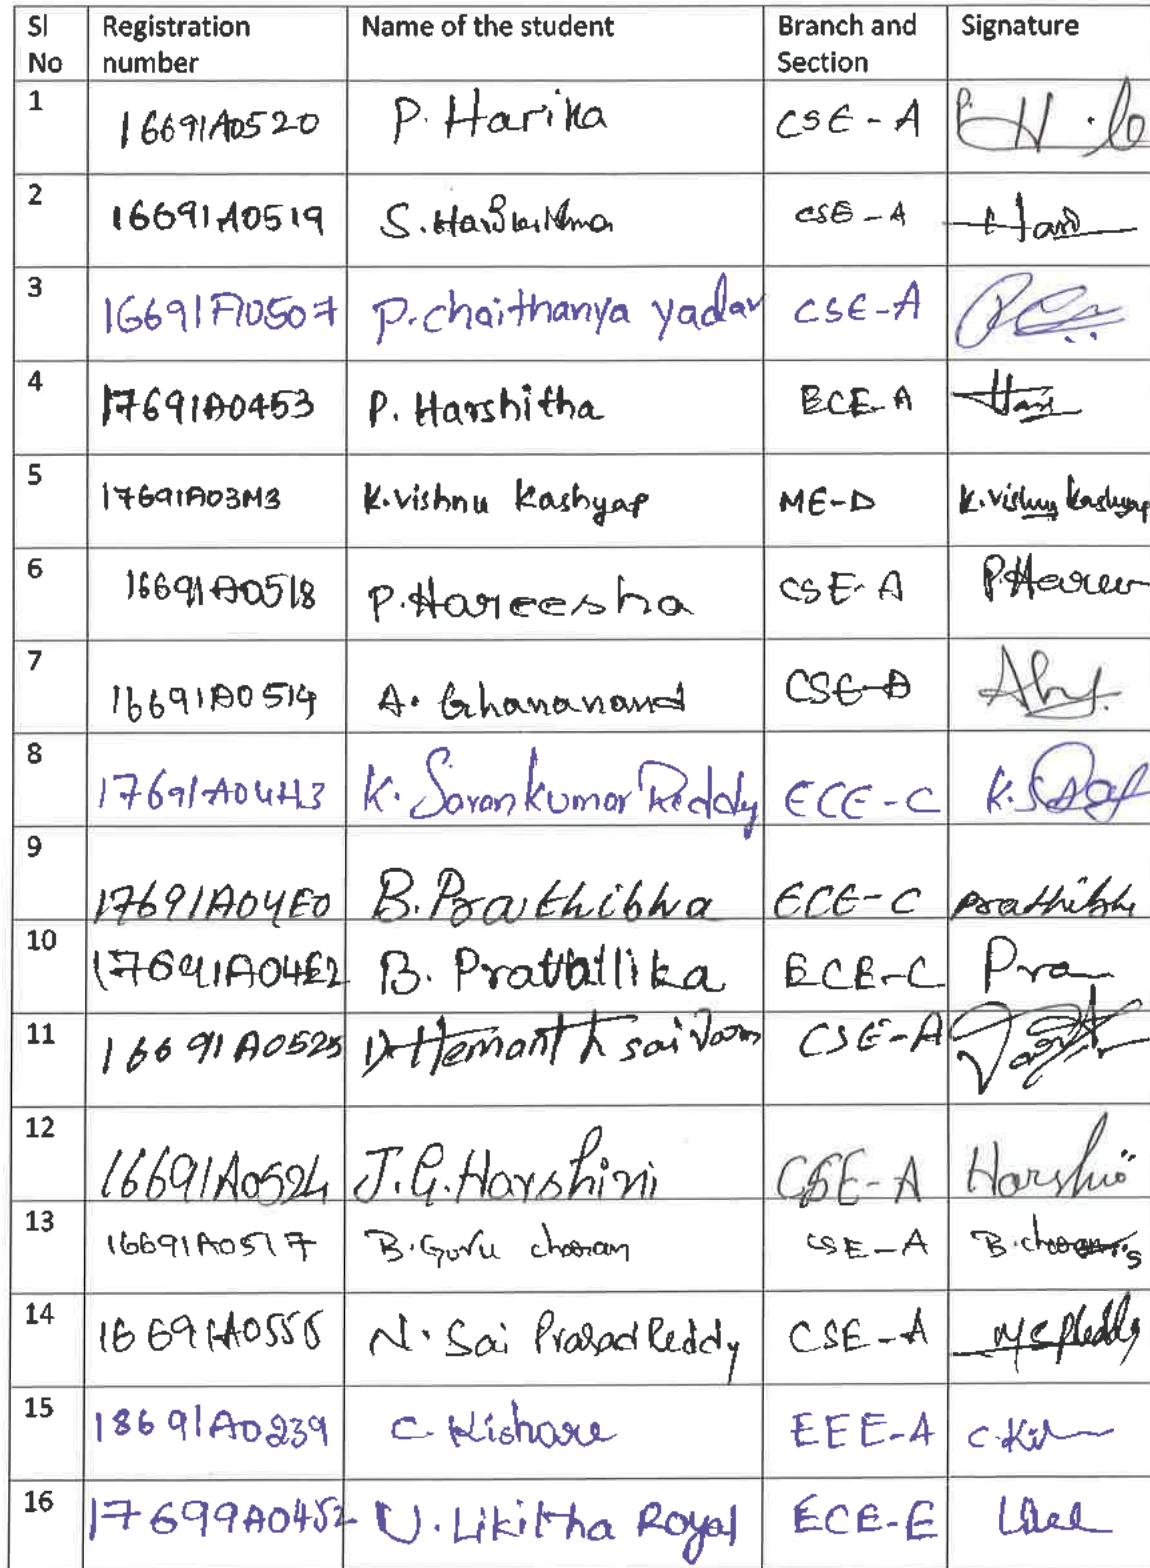 Sl No | Registration number | Name of the student | Branch and Section | Signature
1 | 16691A0520 | P. Harika | CSE-A | P.H
2 | 16691A0519 | S. | CSE-A | Hari
3 | 16691A0507 | P. chaithanya yadav | CSE-A |
4 | 17691A0453 | P. Harshitha | ECE-A |
5 | 17691A03M3 | K. vishnu Kashyap | ME-D | K. vishnu kashyap
6 | 16691A0518 | P. Hareesha | CSE-A |
7 | 16691A0514 | A. Ghananand | CSE-A |
8 | 17691A04H3 | K. Saran kumar Reddy | ECE-C |
9 | 17691A04E0 | B. Prathibha | ECE-C | Prathibha
10 | 17691A04E2 | B. | ECE-C | Pra
11 | 16691A0525 | D. Hemanth sai | CSE-A |
12 | 16691A0524 | J.G. Harshini | CSE-A | Harshi
13 | 16691A0517 | B. Guru charan | CSE-A |
14 | 16691A0555 | N. Sai Prasad Reddy | CSE-A |
15 | 18691A0239 | C. Kishore | EEE-A |
16 | 17699A0452 | U. Likitha Royal | ECE-E |